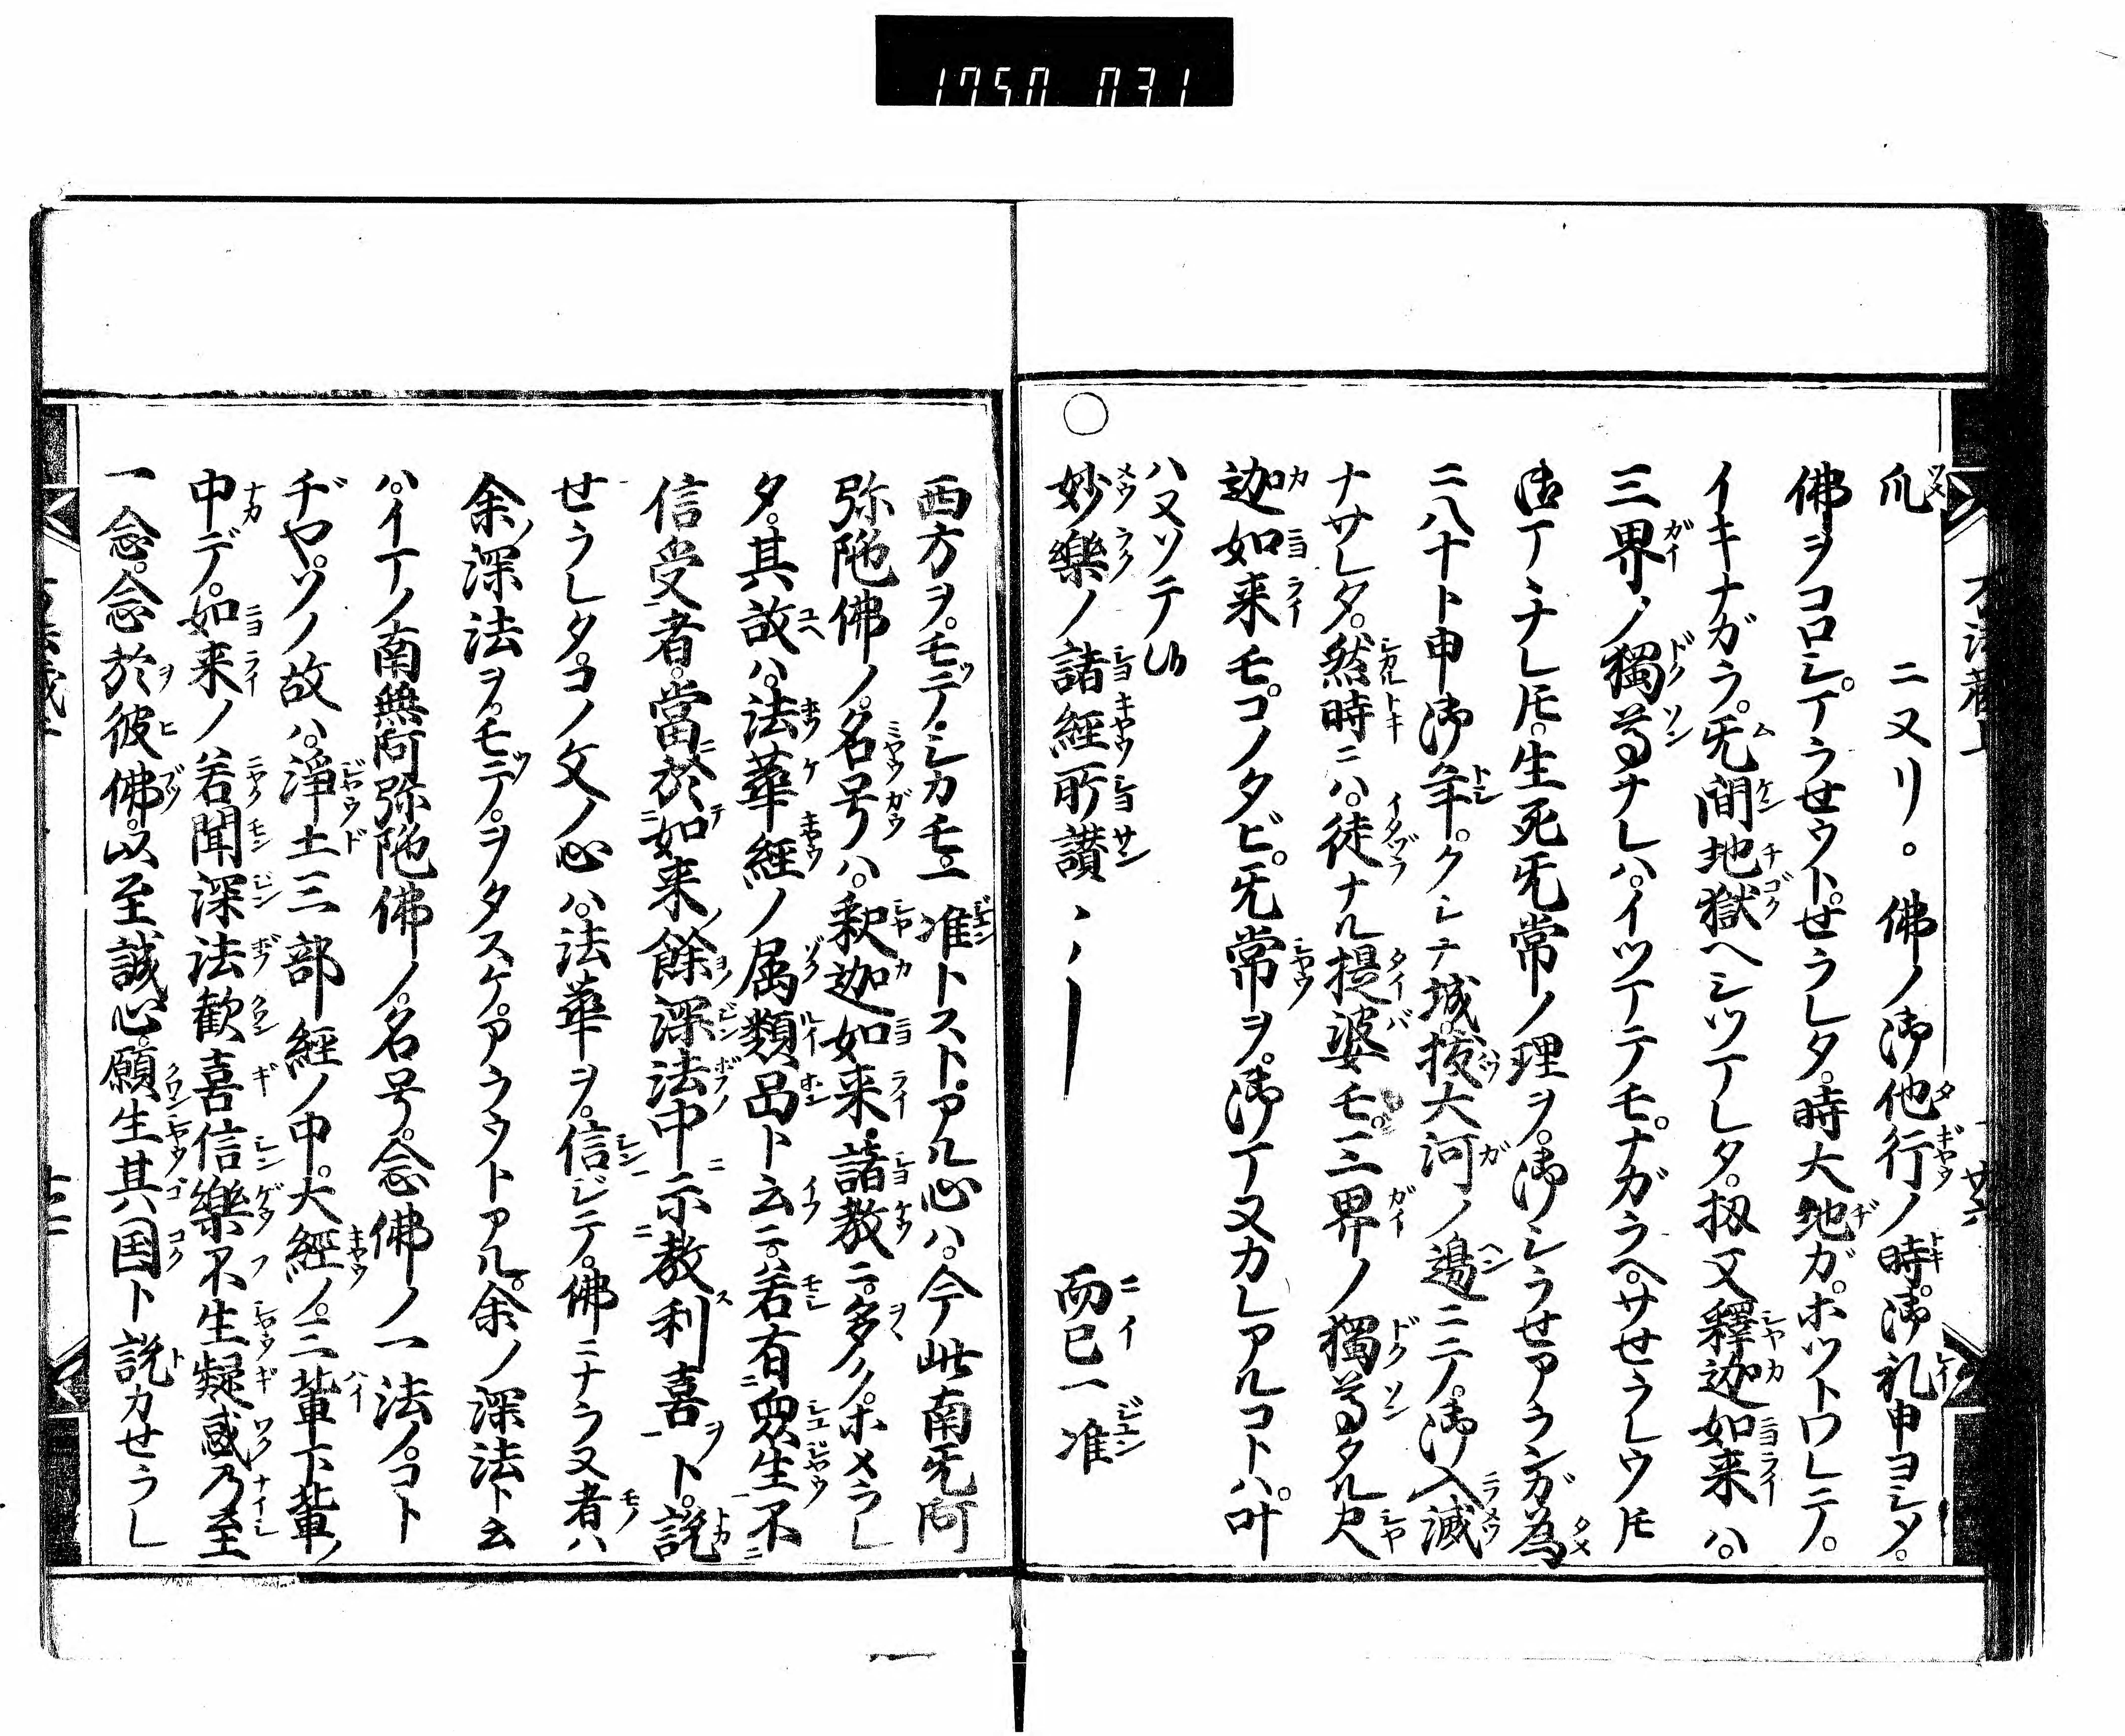 1750 031
爪　ニヌリ。佛ノ御他行ノ時。御礼申ヨシタ。
佛ヲコロシ。アラせウト。せラレタ。時大地ガ。ホツトワレテ。
イキナガラ。旡間地獄ヘシツアレタ。扨又釋迦如来ハ。
三界ノ獨尊ナレハ。イツアテモ。ナガラヘ。サせラレウ𪜈
ナレ𪜈。生死旡常ノ理ヲ。御シラせアランガ為
ニ八十ト申御年。クシナ城。抜大河ノ邊ニテ。御入滅
ナサレタ。然時ニハ。徒ナル提婆モ。三界ノ獨尊タル尺
迦如来モ。コノタビ。旡常ヲ。御
ハ又ソテ
妙樂ノ諸經所讃　而已一准
西方ヲ。モツテ。シカモ。一准トスト。アル心ハ。今此南旡阿
弥陁佛ノ。名号ハ。釈迦如来。諸教ニ。多ク。ホメラレ
タ。其故ハ。法華經ノ属類品ト云ニ。若有衆生不
信受者。當於如来餘深法中示教利喜ト。説
せラレタ。コノ文ノ心ハ。法華ヲ。信ジテ。佛ニナラヌ者ハ
余ノ深法ヲ。モツテ。ヲタスケ。アラウトアル。余ノ深法ト云
ハ。イマノ南無阿弥陁佛ノ。名号。念佛ノ一法ノ。コト
ヂヤ。ソノ故ハ。浄土三部經ノ中。大經ノ。三輩下輩ノ
中デ。如来ノ若聞深法歡喜信樂不生疑惑乃至
一念。念於彼佛。以至誠心。願生其国ト説カせラレ